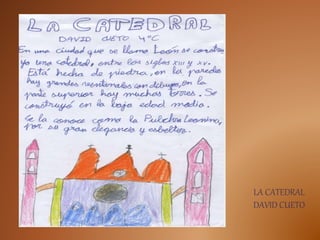 LA CATEDRAL
DAVID CUETO 4ºC
En una ciudad que se llama León se constru
yó una catedral, entre los siglos XIII y XV.
Está hecha de piedra, en la paredes
hay grandes ventanales con dibujos, en la
parte superior hay muchas torres. Se
construyó en la baja edad media.
Se la conoce como la Pulchra Leonina,
por su gran elegancia y esbeltez.
LA CATEDRAL
DAVID CUETO